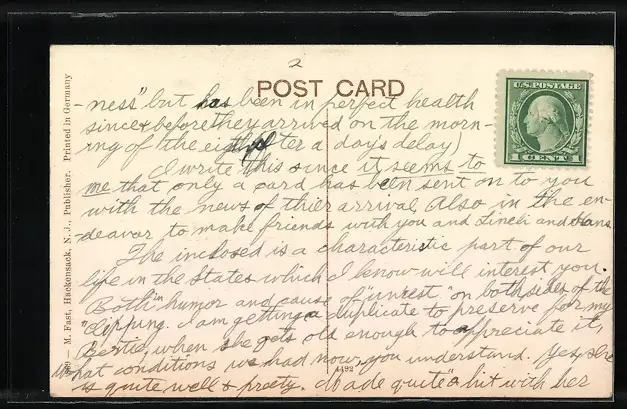 2
POST CARD
U.S. POSTAGE
1 CENT 1
-ness" but has been in perfect health
since & before they arrived on the morn-
ing of the eighth after a days delay)
I write this since it seems to
me that only a card has been sent on to you
with the news of thier arrival. Also in the en-
-deavor to make friends with you and Lincli and Hans
The inclosed is a characteristic part of our
life in the States which I know will interest you.
Both in humor and cause of "unrest" on both sides of the
"clipping. I am getting a duplicate to preserve for my
Bertie, when she gets old enough to appreciate it,
What conditions we had now, you understand. Yes, she
is quite well & pretty. Made quite "a hit with her
M. Fast, Hackensack, N. J., Publisher. Printed in Germany
4492